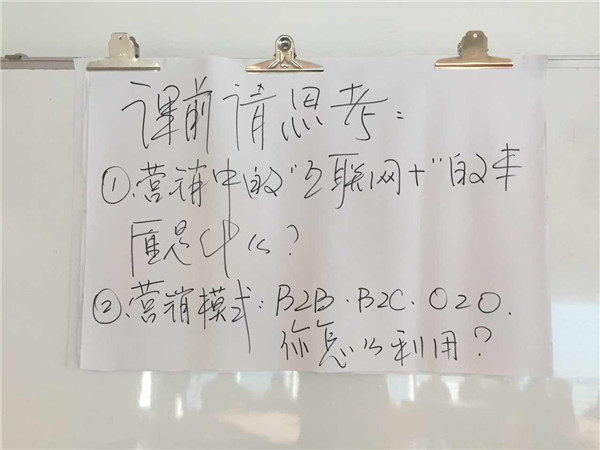 课前请思考:
①.营销中的"互联网+"的本
质是什么?
②.营销模式:B2B.B2C.O2O.
你怎么利用?